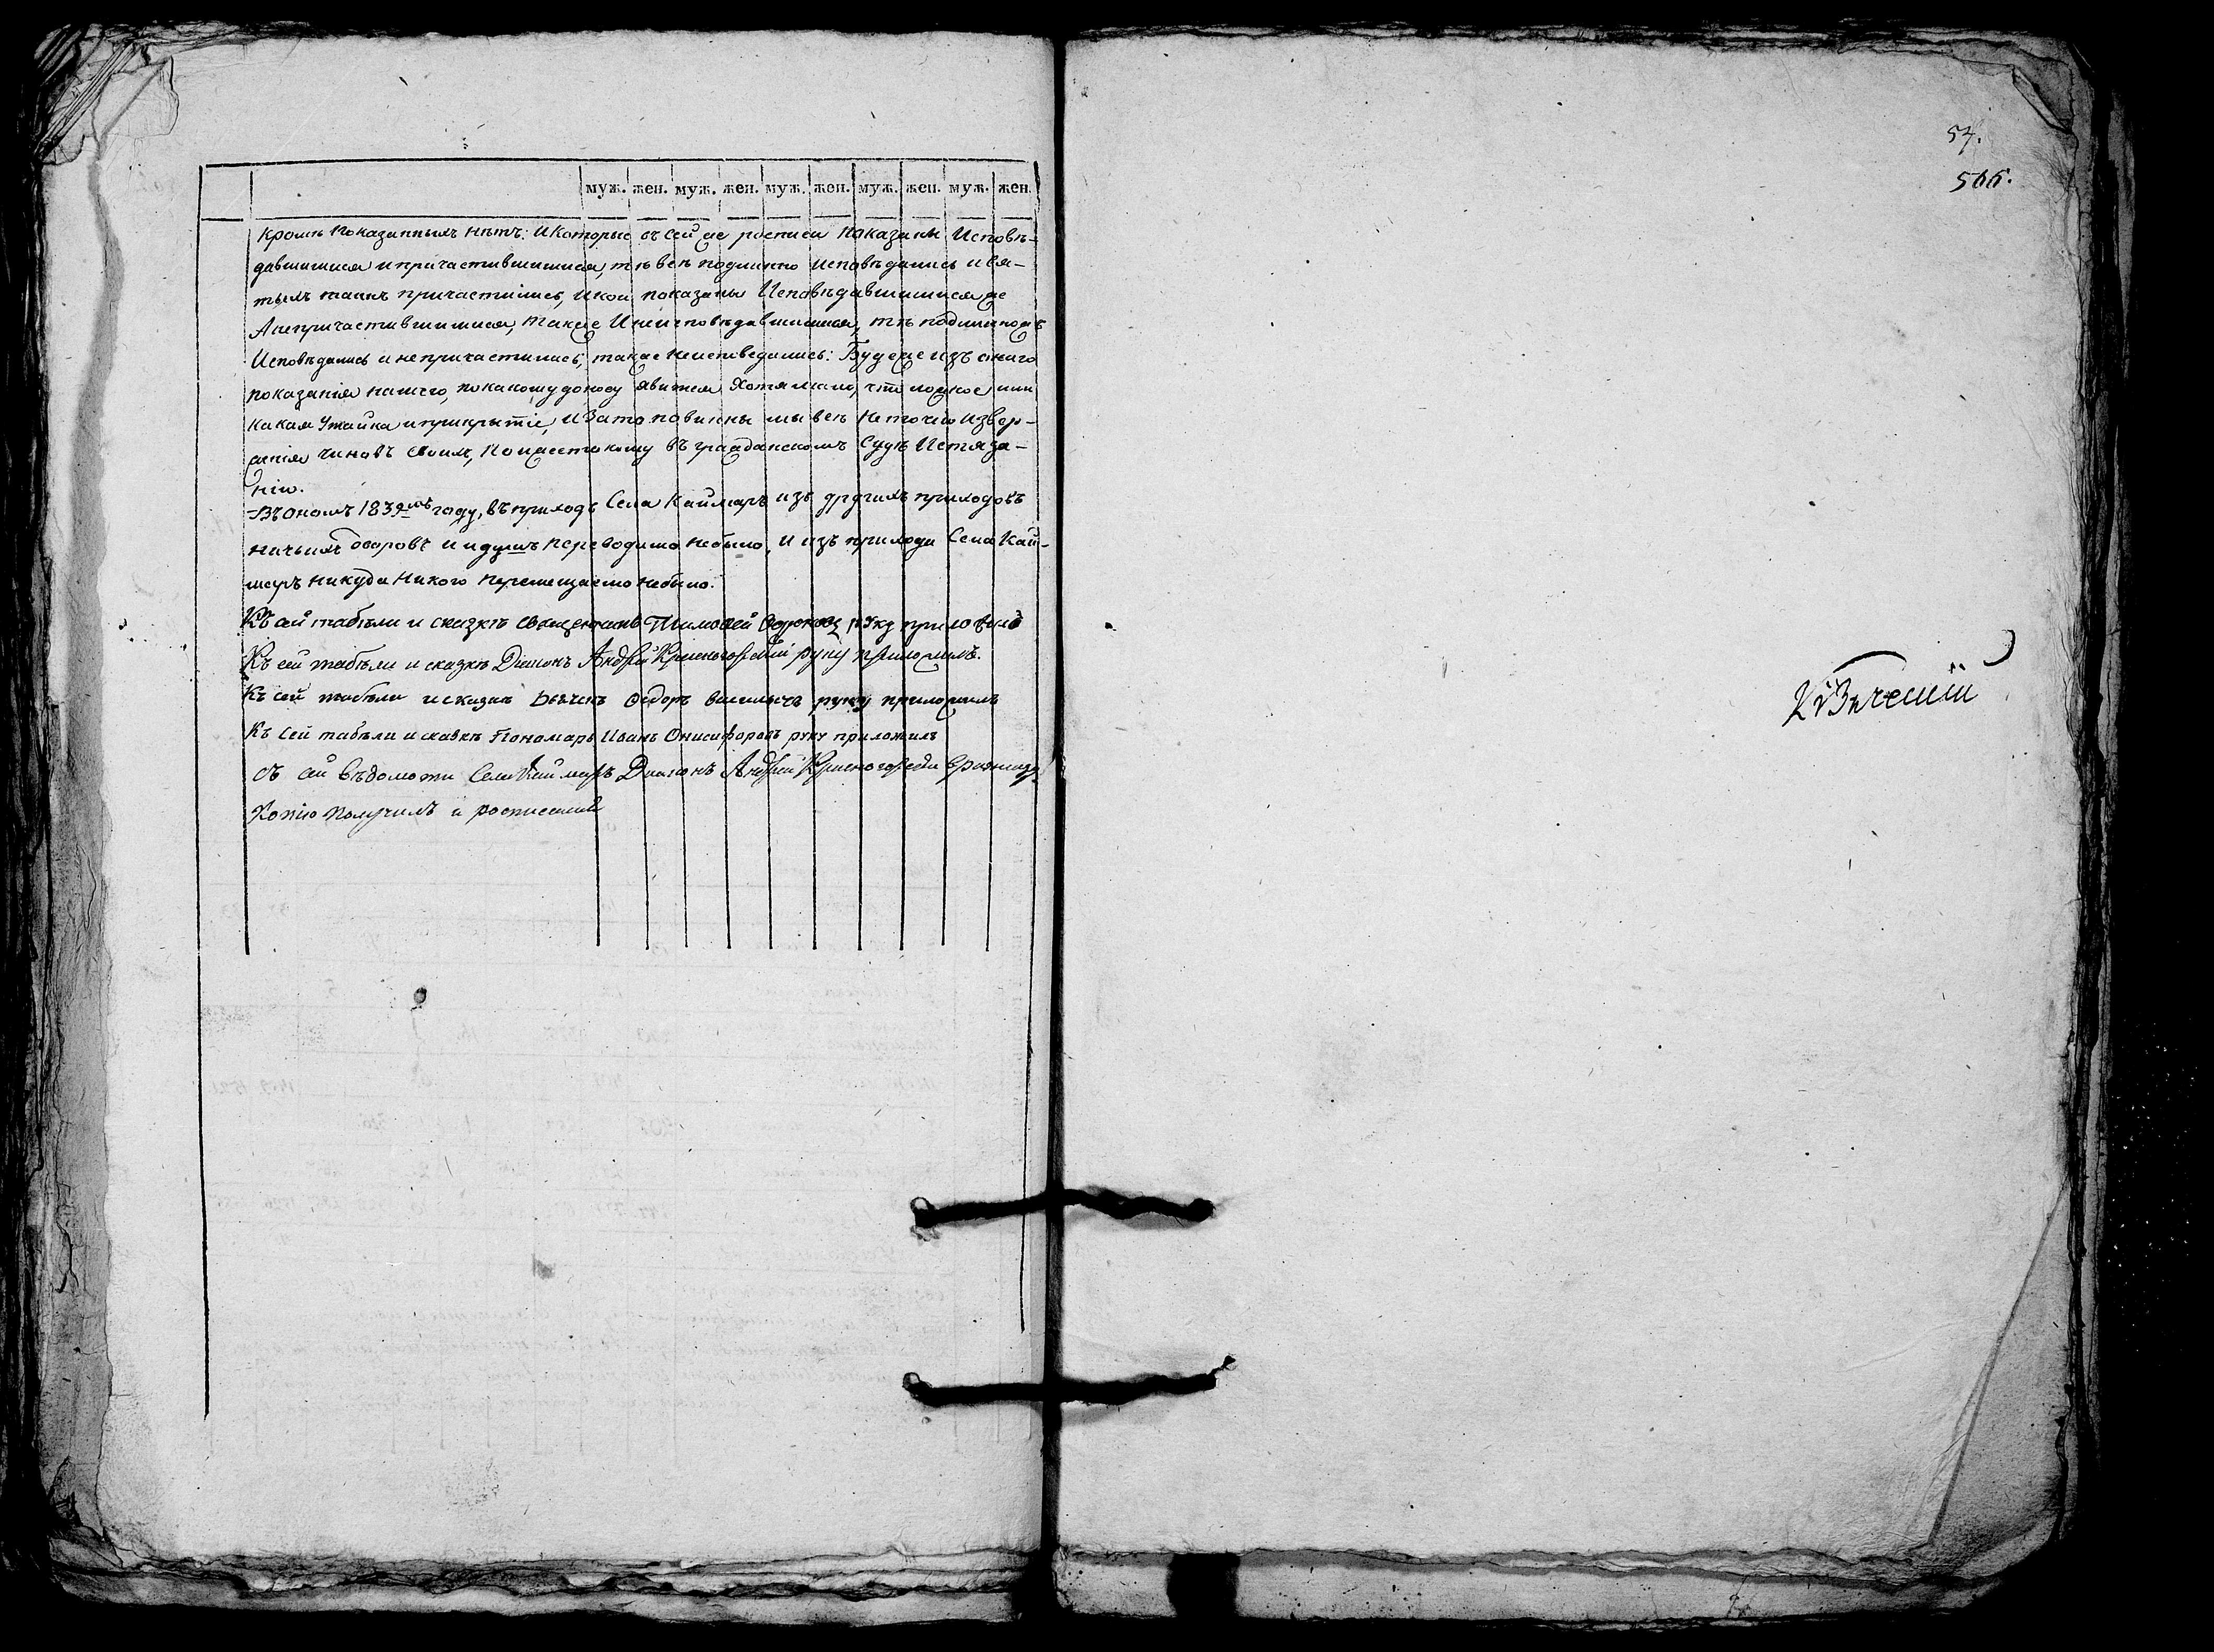 муж. жен. муж. жен. муж. жен. муж. жен. муж. жен.
кромѣ показанныхъ нѣтъ: И Которые въ сей же росписи показаны Исповѣ-
давшимися и причастившимися, тѣ всѣ подлинно исповѣдались и Свя-
тыхъ таинъ причастились, и кои показаны Исповѣдавшимися же
А непричастившимися, также И неисповѣдавшимися, тѣ подлинножъ
Исповѣдались и не причастились, также неисповедались: Буде же изъ онаго
показанія нашего, по какому доносу явится Хотя мало, что ложное или
какая Утайка и прикрытіе, И За то повинны мы всѣ Неточію Извер-
женія чиновъ своихъ, Но и жестокому въ гражданскомъ Судѣ Истяза-
нію.
Въ Ономъ 1839мъ году, въ приходъ Села Каймаръ изъ другихъ приходовъ
ничьихъ дворовъ и душъ переводимо небыло, и изъ прихода Села Кай-
маръ никуда Никого перемещаемо небыло.
Къ сей табѣли и сказкѣ священникъ Тимофей руку приложилъ
Къ сей табѣли и сказкѣ Диаконъ Андрей Красногорскій руку приложилъ.
Къ сей табѣли и сказкѣ Дьячекъ Ѳедоръ Васильевъ руку приложилъ
Къ сей табѣли и сказкѣ Пономарь Иванъ Онисифоровъ руку приложилъ
съ сей вѣдомости Села Каймаръ Диаконъ Андрей Красногорскій
Копію Получилъ и росписался
57.
566.